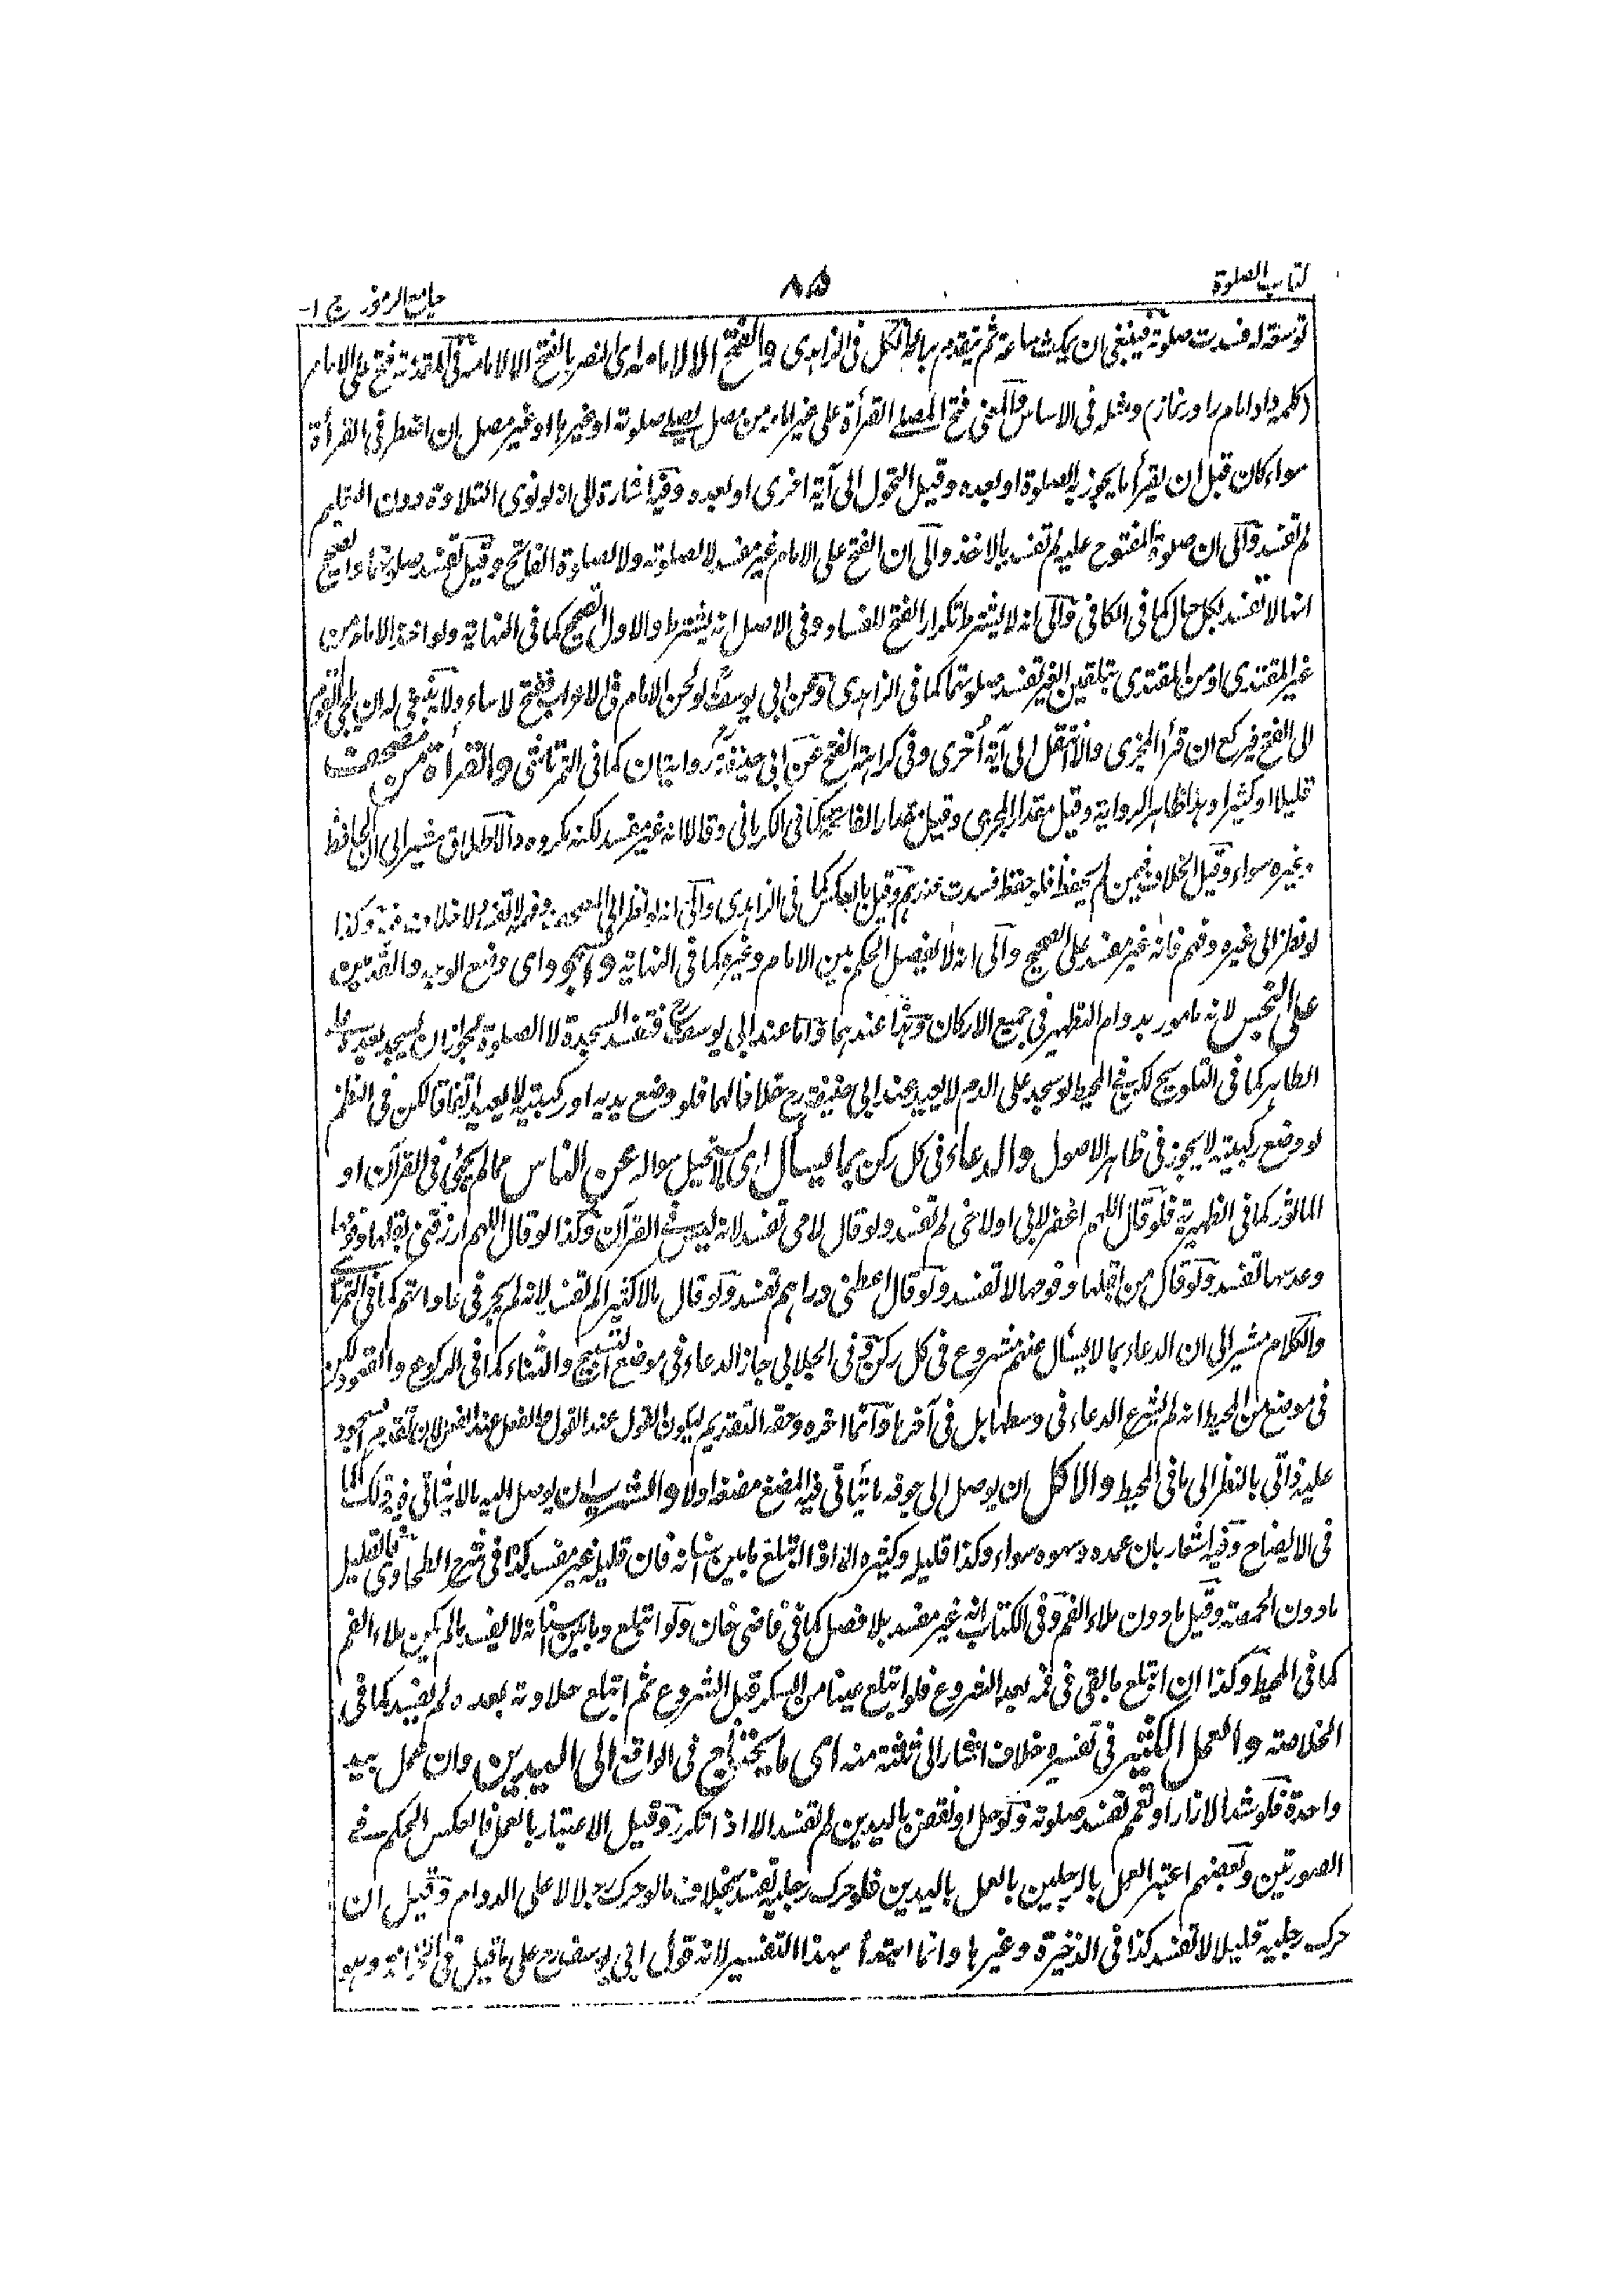 كتاب الصلوة
٨٥
جامع الرموز ج ١-
توسعة له فسدت صلوته فينبغي ان يمكث ساعة ثم يتقدم برايه الكل في الزاهدي والفتح الا لامامه اى النصر بالفتح الا لامامه في المقدمة فتح على الامام
(كلمه داد امام را در نماز) ومثله في الاساس والمعنى فتح المصلي القرأة على غير امامه من مصل يصلي صلوته او غيرها او غير مصل ان اضطر في القرأة
سواء كان قبل ان يقرأ ما يجوز به الصلوة او بعده وقيل التحول الى آية اخرى او بعده وفيه اشارة الى انه لو نوى التلاوة دون التعليم
لم تفسد والى ان صلوة المفتوح عليه لم تفسد بالاخذ والى ان الفتح على الامام غير مفسد لا لصلوته ولا لصلوة الفاتح وقيل تفسد صلوتهما والصحيح
انها لا تفسد بكل حال كما في الكافي والى انه لا يشترط تكرار الفتح للفساد وفي الاصل انه يشترط والاول الصحيح كما في النهاية ولو اخذ الامام من
غير المقتدي او من المقتدي بتلقين الغير تفسد صلوتهما كما في الزاهدي وعن ابي يوسف لو لحن الامام في الاعراب ففتح لاساء ولا ينبغي له ان يلجئ القوم
الى الفتح فيركع ان قرأ المجزى والا انتقل الى آية اخرى وفي كراهة الفتح عن ابي حنيفة روايتان كما في التمرتاشي والقرأة من مصحف
قليلا او كثيرا وهذا ظاهر الرواية وقيل مقدار المجزى وقيل مقدار الفاتحة كما في الكرماني وقالا انه غير مفسد لكنه مكروه والاطلاق مشير الى ان الحافظ
وغيره سواء وقيل الخلاف فيمن لم يحفظ فلو حفظ فسدت عندهم وقيل بالعكس كما في الزاهدي والى انه لو نظر الى المصحف وفهم لا تفسد لا خلاف فيه وكذا
لو نظر الى غيره وفهم فانه غير مفسد على الصحيح والى انه لا يفصل الحكم بين الامام وغيره كما في النهاية والسجود اى وضع الوجه والقدمين
على النجس لانه مامور بدوام التطهر في جميع الاركان وهذا عندهما واما عند ابي يوسف فتفسد السجدة لا الصلوة فيجوز ان يسجد بعده على
الطاهر كما في التلويح لكن في المحيط لو سجد على الدم لا يعيد عند ابي حنيفة رح خلافا لهما فلو وضع يديه او ركبتيه لا يعيد اتفاقا لكن في النظم
لو وضع ركبتيه لا يجوز في ظاهر الاصول والدعاء في كل ركن بما يسأل اى لا يستحيل سواله عن الناس مما لم يجئ في القرآن او
الماثور كما في الظهيرية فلو قال اللهم اغفر لابي او لاخي لم تفسد ولو قال لامي تفسد لانه ليس في القرآن وكذا لو قال اللهم ارزقني بقلها وفومها
وعدسها تفسد ولو قال من بقلها وفومها لا تفسد ولو قال اعطني دراهم تفسد ولو قال مالا كثيرا لم تفسد لانه لم يجر في ما دانتم كما في التمرتاشي
والكلام مشير الى ان الدعاء بما لا يسأل عنهم مشروع في كل ركن وفي الجلابي جاز الدعاء في موضع التسبيح والثناء كما في الركوع والقعود لكن
في موضع من المحيط انه لم يشرع الدعاء في وسطها بل في آخرها وانما اخره وحقه التقديم ليكون القول عند القول والفعل عند الفعل لان تقديم السجود
عليه ذاتي بالنظر الى ما في المحيط والاكل ان يوصل الى جوفه ما يتأتى فيه المضغ مضغ اولا والشرب ان يوصل اليه ما لا يتأتى فيه ذلك كما
في الايضاح وفيه اشعار بان عمده وسهوه سواء وكذا قليله وكثيره الا اذا ابتلع ما بين اسنانه فان قليله غير مفسد كذا في شرح الطحاوي فالقليل
ما دون الحمصة وقيل ما دون ملاء الفم وفي الكتاب انه غير مفسد بلا فصل كما في قاضي خان ولو ابتلع دما بين اسنانه لا يفسد ما لم يكن ملاء الفم
كما في المحيط وكذا ان ابتلع ما بقي في فمه بعد الشروع فلو ابتلع عينا من السكر قبل الشروع ثم ابتلع حلاوته بعده لم يفسد كما في
الخلاصة والعمل الكثير في تفسيره خلاف اشار الى ثلثة منه اى ما يحتاج في الواقع الى اليدين وان عمل بيد
واحدة فلو شد الازار او تعمم تفسد صلوته ولو حل او نقض باليدين لم تفسد الا اذا تكرر وقيل الاعتبار بالعمل فانعكس الحكم في
الصورتين وبعضهم اعتبر العمل بالرجلين بالعمل باليدين فلو حرك رجليه تفسد بخلاف ما لو حرك رجلا لا على الدوام وقيل ان
حرك رجليه قليلا لا تفسد كذا في الذخيرة وغيرها وانما ابتدأ بهذا التفسير لانه قول ابي يوسف رح على ما قيل في الخزانة وهو